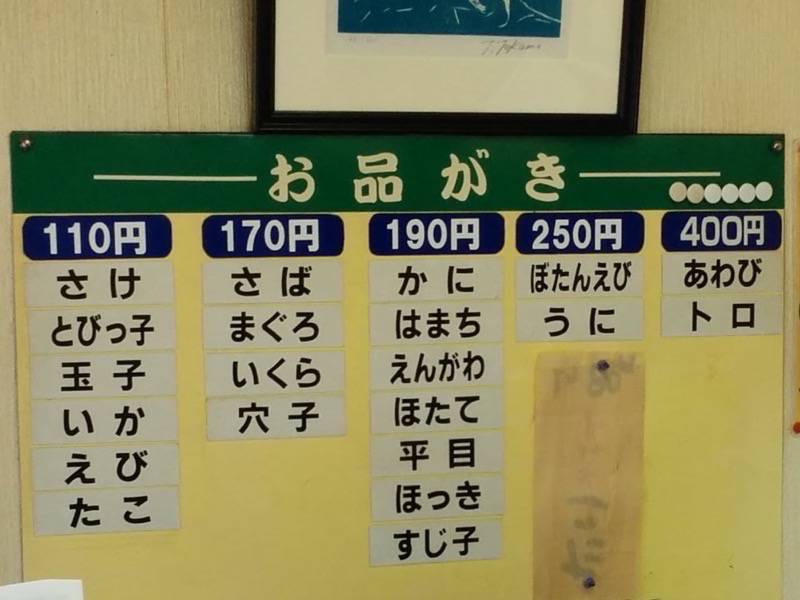 お品がき
110円
さけ
とびっ子
玉子
いか
えび
たこ
170円
さば
まぐろ
いくら
穴子
190円
かに
はまち
えんがわ
ほたて
平目
ほっき
すじ子
250円
ぼたんえび
うに
400円
あわび
トロ